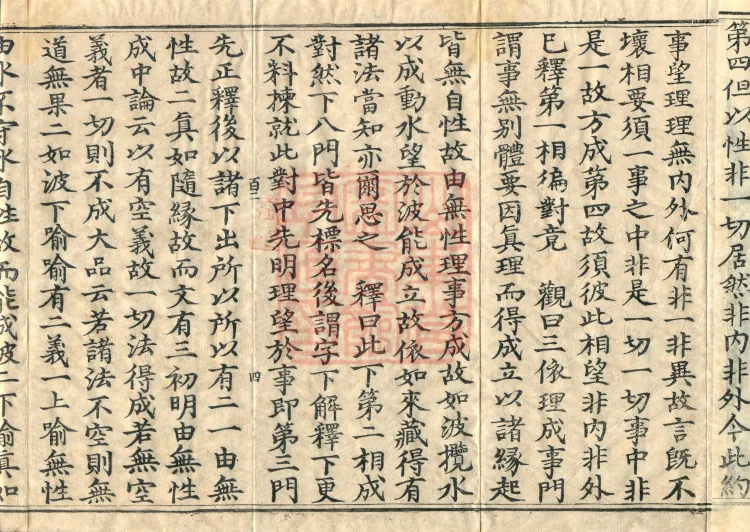 第四但以性非一切居然非內非外今此約
事望理理無內外何有非一非異故言旣不
壞相要須一事之中非是一切一切事中非
是一故方成第四故須彼此相望非內非外
已釋第一相徧對竟 觀曰三依理成事門
謂事無別體要因眞理而得成立以諸緣起
皆無自性故由無性理事方成故如波攬水
以成動水望於波能成立故依如來藏得有
諸法當知亦爾思之 釋曰此下第二相成
對然下八門皆先標名後謂字下解釋下更
不料揀就此對中先明理望於事即第三門
百二 四
先正釋後以諸下出所以所以有二一由無
性故二眞如隨緣故而文有三初明由無性
成中論云以有空義故一切法得成若無空
義者一切則不成大品云若諸法不空則無
道無果二如波下喻喻有二義一上喻無性
由水不守水自性故而能成波二下喻眞如